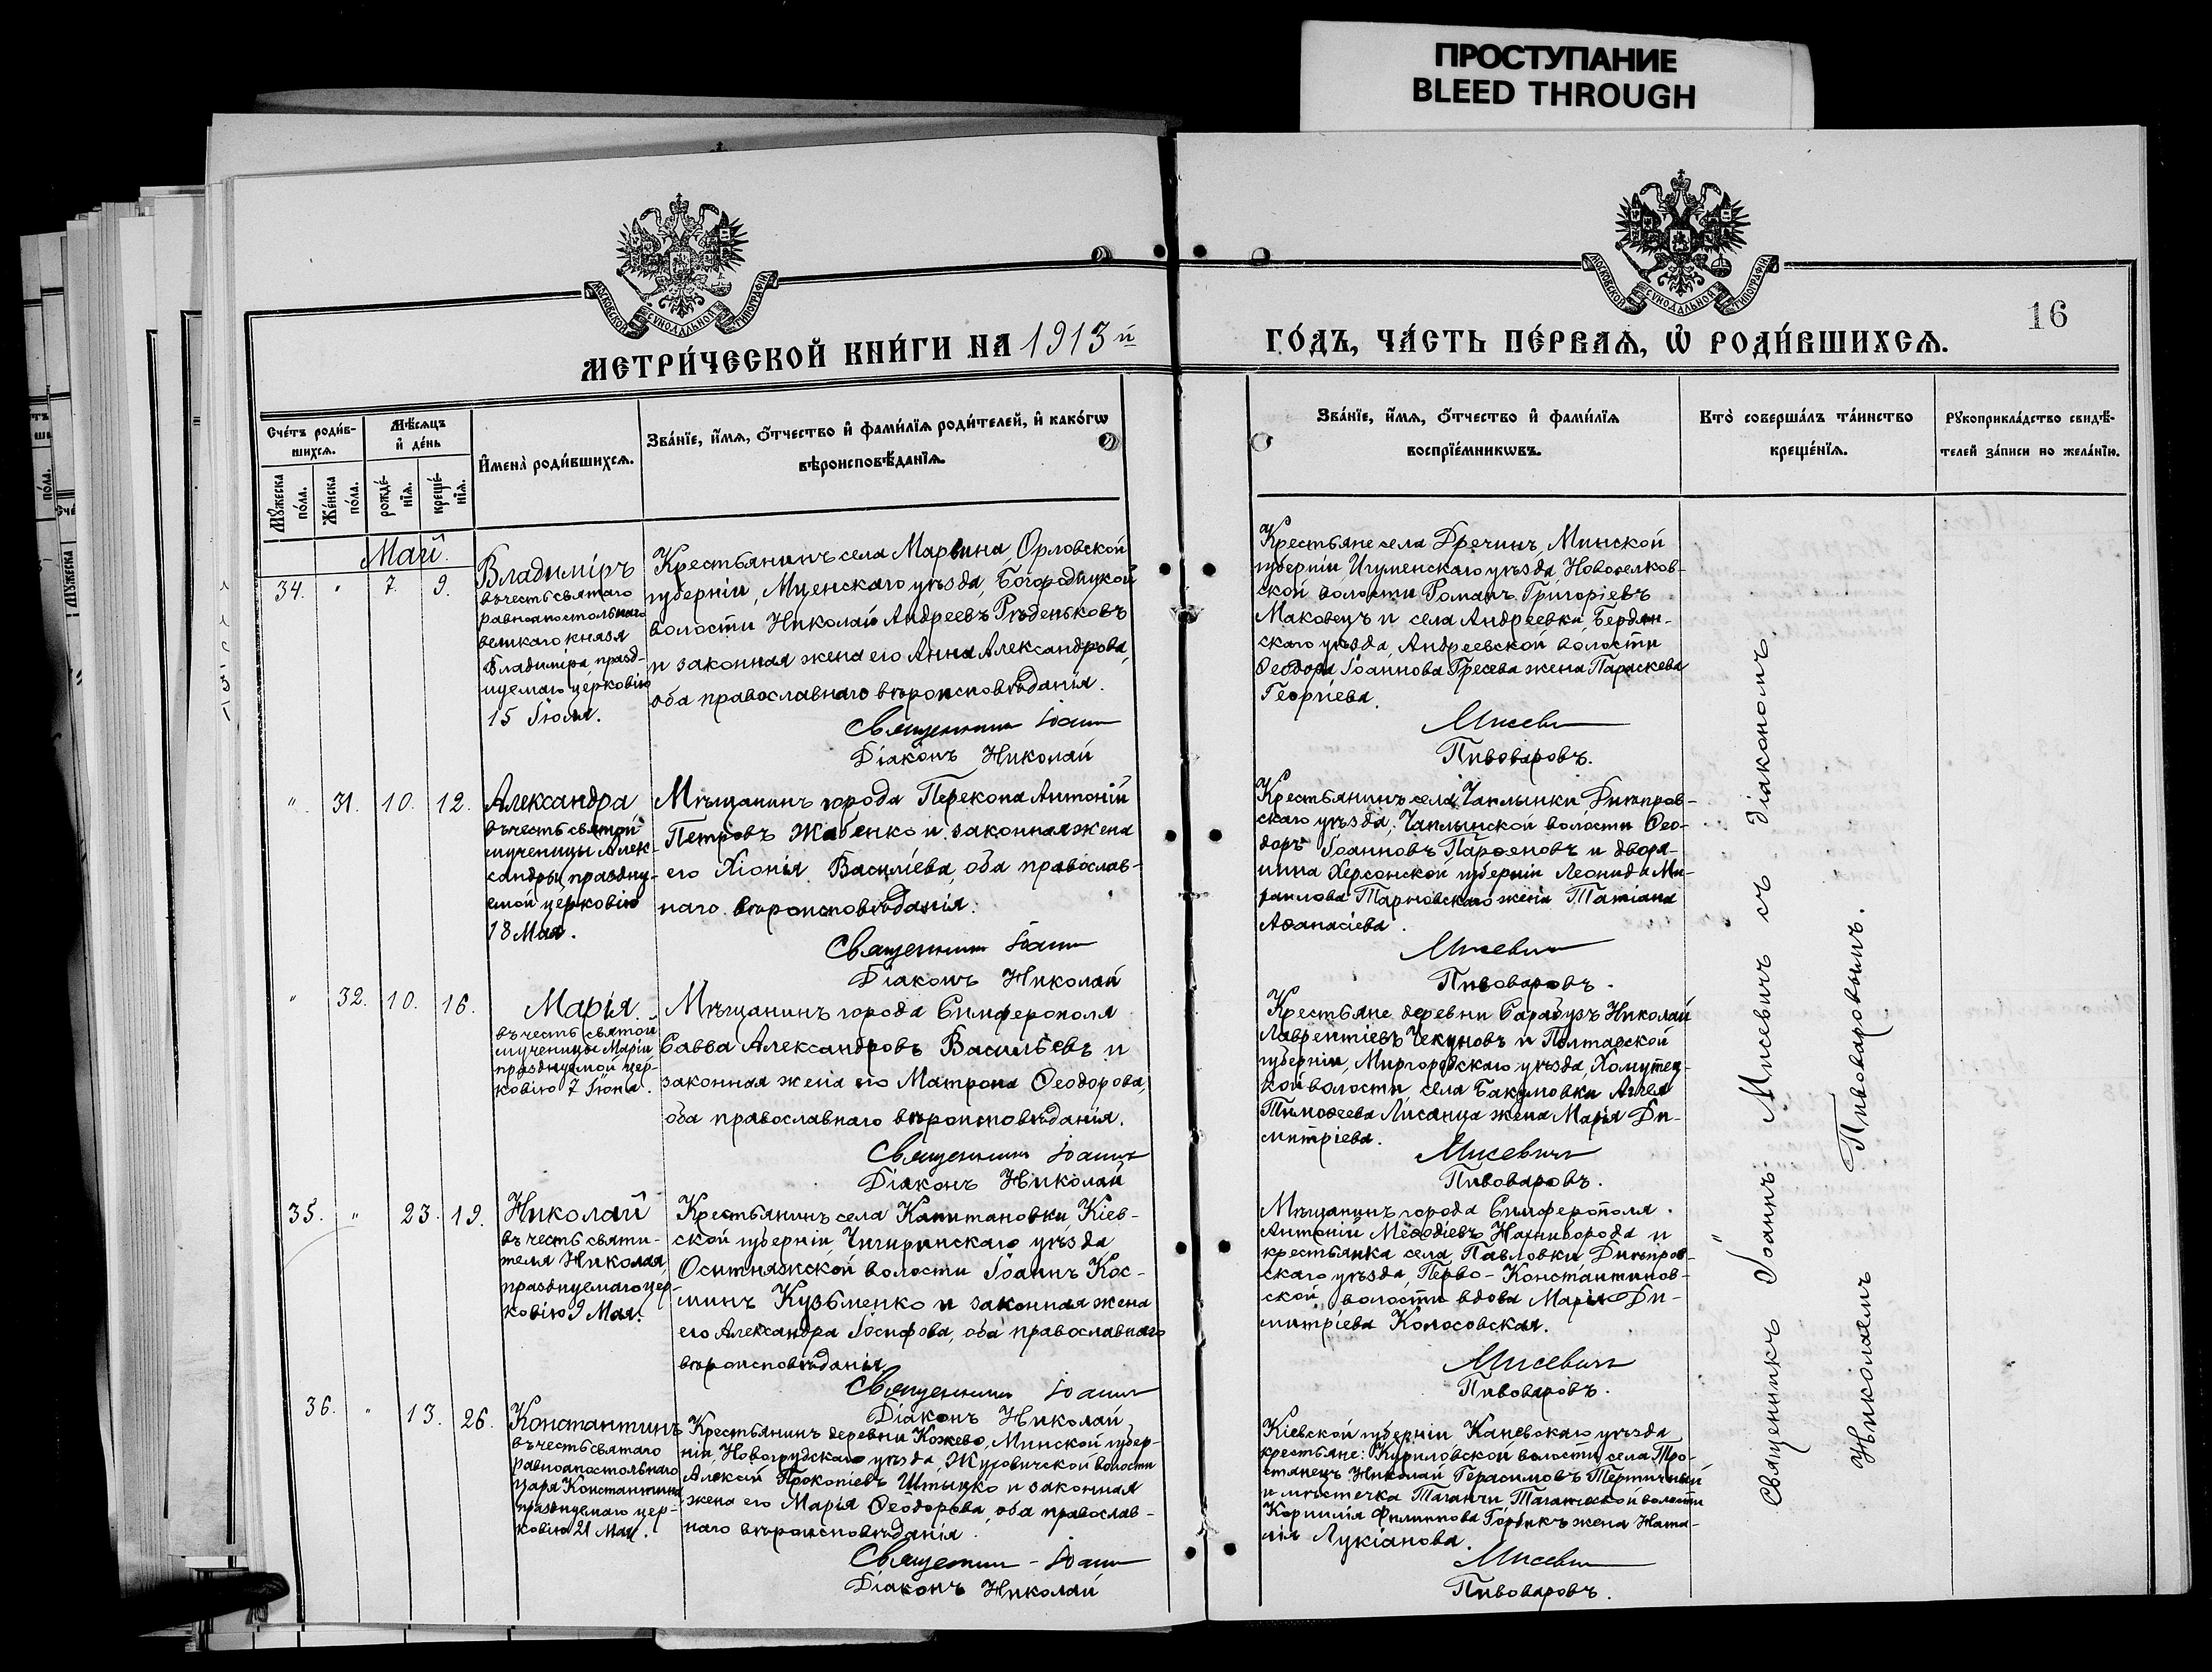 ПРОСТУПАНИЕ
BLEED THROUGH
МОСКОВСКОЙ СѴНОДАЛЬНОЙ ТИПОГРАФІИ
МОСКОВСКОЙ СѴНОДАЛЬНОЙ ТИПОГРАФІИ
16
МЕТРИ́ЧЕСКОЙ КНИ́ГИ НА 1913 й
ГО́ДЪ, ЧА́СТЬ ПЕ́РВАѦ, Ѡ҆ РОДИ́ВШИХСѦ.
Сче́тъ роди́в-
шихсѧ.
Мꙋ́жеска
по́ла.
Же́нска
по́ла.
Мѣ́сѧцъ
и҆ де́нь
рожде́-
нїѧ.
креще́-
нїѧ.
И҆мена̀ роди́вшихсѧ.
Зва́нїе, и҆́мѧ, ѻ҆́тчество и҆ фами́лїѧ роди́телей, и҆ како́гѡ
вѣроисповѣ́данїѧ.
Зва́нїе, и҆́мѧ, ѻ҆́тчество и҆ фами́лїѧ
воспрїе́мникѡвъ.
Кто̀ соверша́лъ та́инство
креще́нїѧ.
Рꙋкоприкла́дство свидѣ́-
телей за́писи по жела́нїю.
Май.
34. " 7. 9.
Владиміръ
въ честь святаго
равноапостольнаго
великаго князя
Владиміра празд-
нуемаго церковію
15 Іюля.
Крестьянинъ села Марвина, Орловской
губерніи, Мценскаго уѣзда, Богородицкой
волости Николай Андреевъ Рѣденьковъ
и законная жена его Анна Александрова,
оба православнаго вѣроисповѣданія.
Священникъ Іоаннъ
Діаконъ Николай
Крестьяне села Дречинъ, Минской
губерніи, Игуменскаго уѣзда, Новоселков-
ской волости Романъ Григоріевъ
Маковецъ и села Андреевки, Бердян-
скаго уѣзда, Андреевской волости
Ѳеодора Іоаннова Гресева жена Параскева
Георгіева.
Мисевичъ
Пивоваровъ.
" 31. 10. 12.
Александра
въ честь святой
мученицы Алек-
сандры, праздну-
емой церковію
18 Мая.
Мѣщанинъ города Перекопа Антоній
Петровъ Жабенко и законная жена
его Хіонія Василіева, оба православ-
наго вѣроисповѣданія.
Священникъ Іоаннъ
Діаконъ Николай
Крестьянинъ села Чаплынки, Днѣпров-
скаго уѣзда, Чаплынской волости Ѳео-
доръ Іоанновъ Парѳеновъ и дворя-
нина Херсонской губерніи Леонида Ми-
хаилова Тарновскаго жена Татіана
Аѳанасіева.
Мисевичъ
Пивоваровъ.
" 32. 10. 16.
Марія.
въ честь святой
мученицы Маріи
празднуемой цер-
ковію 7 Іюня.
Мѣщанинъ города Симферополя
Савва Александровъ Васильевъ и
законная жена его Матрона Ѳеодорова,
оба православнаго вѣроисповѣданія.
Священникъ Іоаннъ
Діаконъ Николай
Крестьяне деревни Сарабузъ Николай
Лаврентіевъ Чекуновъ и Полтавской
губерніи, Миргородскаго уѣзда, Хомутец-
кой волости, села Бакумовки
Тимоѳеева Лисанца жена Марія Ди-
митріева.
Мисевичъ
Пивоваровъ.
35. " 23. 19.
Николай
въ честь святи-
теля Николая,
празднуемаго цер-
ковію 9 Мая.
Крестьянинъ села Капитановки, Кіев-
ской губерніи Чигиринскаго уѣзда
Оситняжской волости Іоаннъ Кос-
минъ Кузьменко и законная жена
его Александра Іосифова, оба православнаго
вѣроисповѣданія.
Священникъ Іоаннъ
Діаконъ Николай
Мѣщанинъ города Симферополя
Антоній Меѳодіевъ и
крестьянка села Павловки, Днѣпров-
скаго уѣзда, Перво-Константинов-
ской волости вдова Марія Ди-
митріева Колосовская.
Мисевичъ
Пивоваровъ.
36. " 13. 26.
Константинъ
въ честь святаго
равноапостольнаго
царя Константина,
празднуемаго цер-
ковію 21 Мая.
Крестьянинъ деревни Кожево, Минской губер-
ніи, Новогрудскаго уѣзда, Жуховичской волости
Алексій Прокопіевъ Штыцко и законная
жена его Марія Ѳеодорова, оба православ-
наго вѣроисповѣданія.
Священникъ Іоаннъ
Діаконъ Николай
Кіевской губерніи Каневскаго уѣзда
крестьяне: Куриловской волости, села Тро-
стянецъ Николай Герасимовъ Тертичный
и мѣстечка Таганчи, Таганчской волости
Корнилія Филиппова Горбикъ жена Ната-
лія Лукіанова.
Мисевичъ
Пивоваровъ.
Священникъ Іоаннъ Мисевичъ съ діакономъ
Николаемъ Пивоваровымъ.